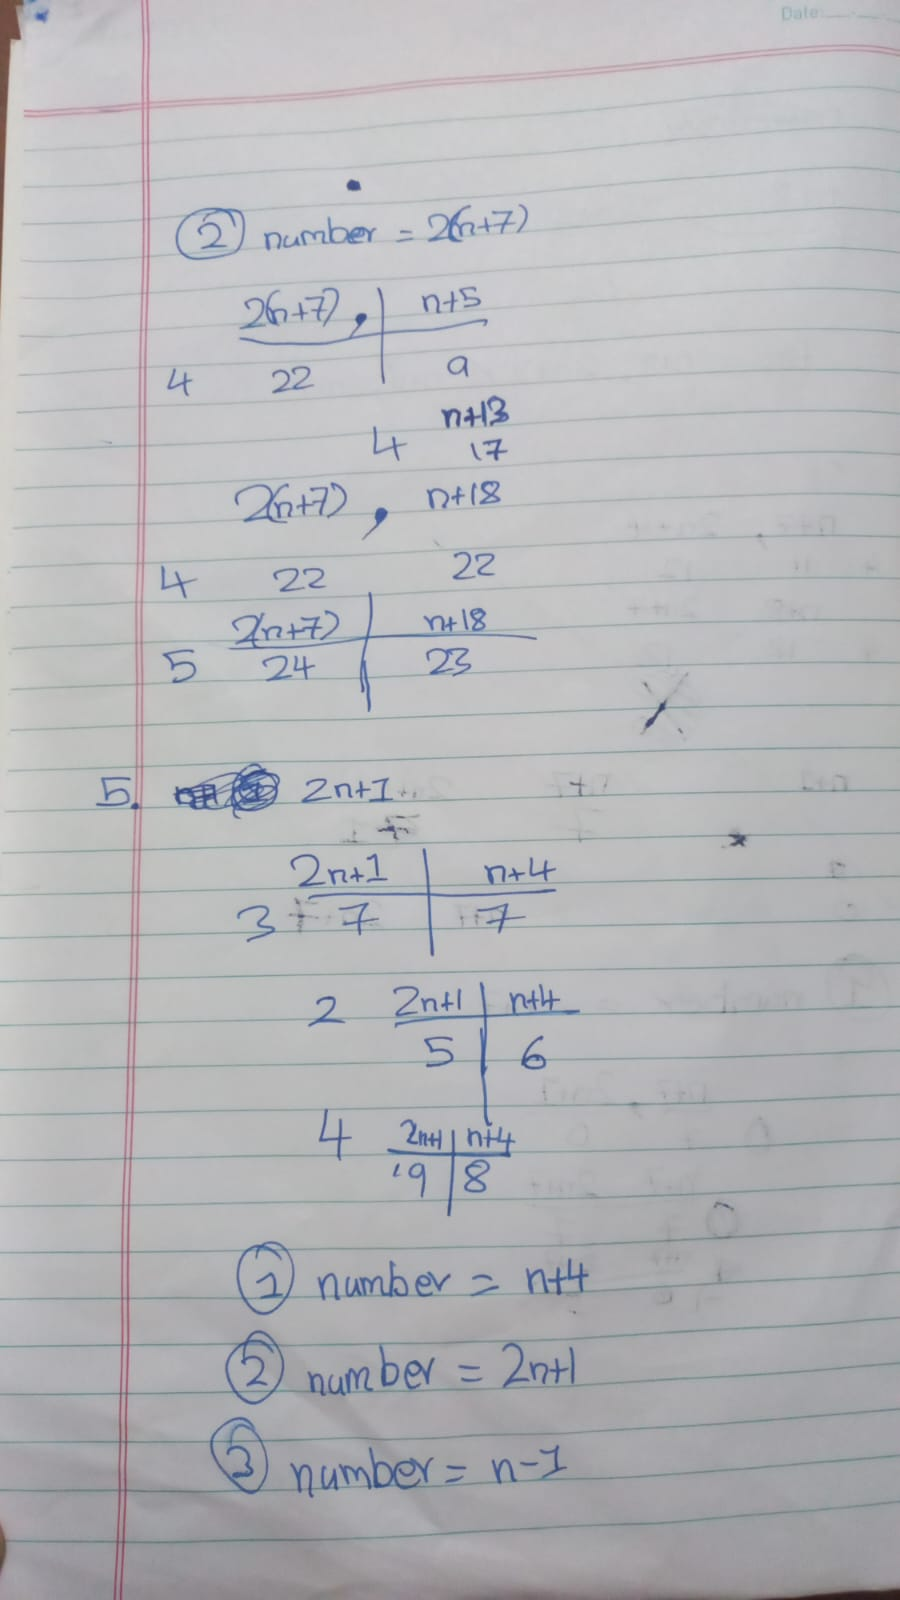 Date:
2 number = 2(n+7)
2(n+7), n+5
4 22 9
n+13
4 17
2(n+7), n+18
4 22 22
2(n+7) n+18
5 24 23
5. 2n+1
2n+1 n+4
3 7 7
2 2n+1 n+4
5 6
4 2n+1 n+4
9 8
1 number = n+4
2 number = 2n+1
3 number = n-1